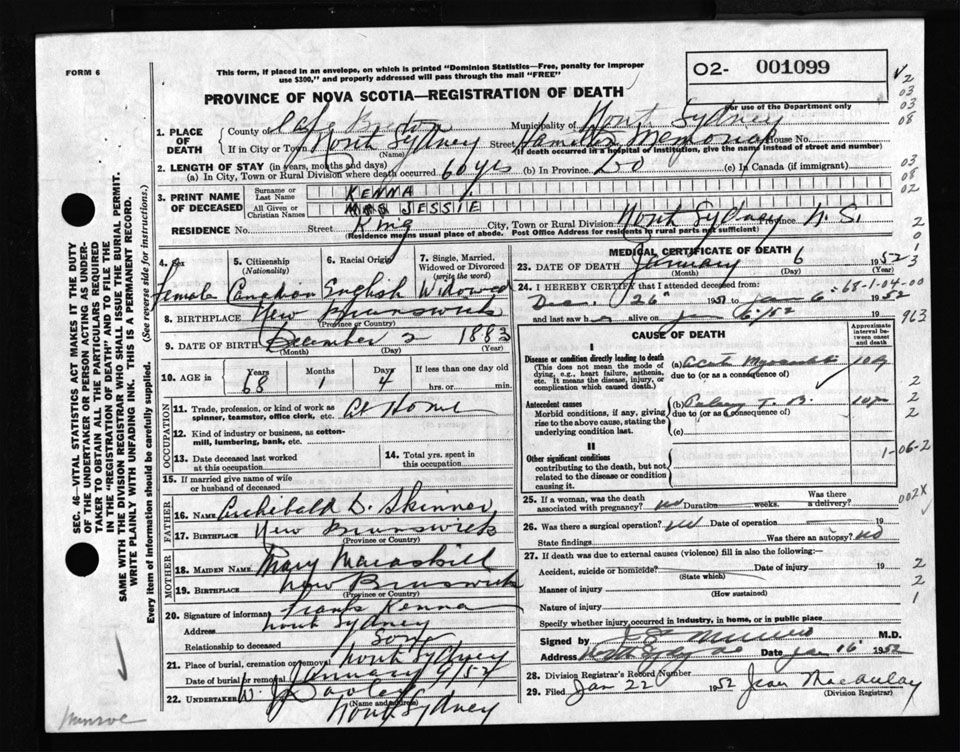 FORM 6
This form, if placed in an envelope, on which is printed "Dominion Statistics—Free, penalty for improper
use $300," and properly addressed will pass through the mail "FREE"
O2- 001099
For use of the Department only
PROVINCE OF NOVA SCOTIA—REGISTRATION OF DEATH
1. PLACE OF DEATH County of Cape Breton Municipality of North Sydney
If in City or Town North Sydney (Name) Street Hamilton Memorial House No.
(If death occurred in a hospital or institution, give the name instead of street and number)
2. LENGTH OF STAY (in years, months and days)
(a) In City, Town or Rural Division where death occurred 60 yrs (b) In Province Do (c) In Canada (if immigrant)
3. PRINT NAME OF DECEASED Surname or Last Name KENNA
All Given or Christian Names MRS JESSIE
RESIDENCE No. Street King City, Town or Rural Division North Sydney Province N.S.
(Residence means usual place of abode. Post Office Address for residents in rural parts not sufficient)
4. Sex Female
5. Citizenship (Nationality) Canadian
6. Racial Origin English
7. Single, Married, Widowed or Divorced (write the word) Widowed
8. BIRTHPLACE New Brunswick
(Province or Country)
9. DATE OF BIRTH December 2 1883
(Month) (Day) (Year)
10. AGE in Years 68 Months 1 Days 4 If less than one day hrs. or min.
OCCUPATION
11. Trade, profession, or kind of work as spinner, teamster, office clerk, etc. At Home
12. Kind of industry or business, as cotton-mill, lumbering, bank, etc.
13. Date deceased last worked at this occupation
14. Total yrs. spent in this occupation
15. If married give name of wife or husband of deceased
FATHER
16. NAME Archibald D. Skinner
17. BIRTHPLACE New Brunswick
(Province or Country)
MOTHER
18. MAIDEN NAME Mary
19. BIRTHPLACE New Brunswick
(Province or Country)
20. Signature of informant Frank Kenna
Address North Sydney
Relationship to deceased Son
21. Place of burial, cremation or removal North Sydney
Date of burial or removal January 9/52
22. UNDERTAKER W. J. Dooley
(Name and address)
North Sydney
MEDICAL CERTIFICATE OF DEATH
23. DATE OF DEATH January 6 1952
(Month) (Day)
24. I HEREBY CERTIFY that I attended deceased from:
Dec. 26th 1951 to Jan 6 1952
and last saw her alive on Jan 6/52 19
CAUSE OF DEATH
Approximate interval between onset and death
I
Disease or condition directly leading to death (a) Acute
(This does not mean the mode of dying, e.g., heart failure, asthenia, etc. It means the disease, injury, or complication which caused death.)
due to (or as a consequence of)
Antecedent causes (b) T. B.
Morbid conditions, if any, giving rise to the above cause, stating the underlying condition last.
due to (or as consequence of)
(c)
II
Other significant conditions
contributing to the death, but not related to the disease or condition causing it.
25. If a woman, was the death associated with pregnancy? no Duration weeks. Was there a delivery?
26. Was there a surgical operation? no Date of operation 19
State findings Was there an autopsy? no
27. If death was due to external causes (violence) fill in also the following:—
Accident, suicide or homicide? Date of injury 19
(State which)
Manner of injury
(How sustained)
Nature of injury
Specify whether injury occurred in industry, in home, or in public place
Signed by M.D.
Address Date Jan 16 1952
28. Division Registrar's Record Number
29. Filed Jan 22 1952 Jean Macaulay
(Division Registrar)
SEC. 46—VITAL STATISTICS ACT MAKES IT THE DUTY
OF THE UNDERTAKER OR PERSON ACTING AS UNDER-
TAKER TO OBTAIN ALL THE PARTICULARS REQUIRED
IN THE "REGISTRATION OF DEATH" AND TO FILE THE
SAME WITH THE DIVISION REGISTRAR WHO SHALL ISSUE THE BURIAL PERMIT.
WRITE PLAINLY WITH UNFADING INK. THIS IS A PERMANENT RECORD.
Every item of information should be carefully supplied. (See reverse side for instructions.)
2
03
03
08
03
08
02
2
0
1
3
-68-1-04-00
963
2
2
2
1-06-2
002X
2
2
1
Munroe